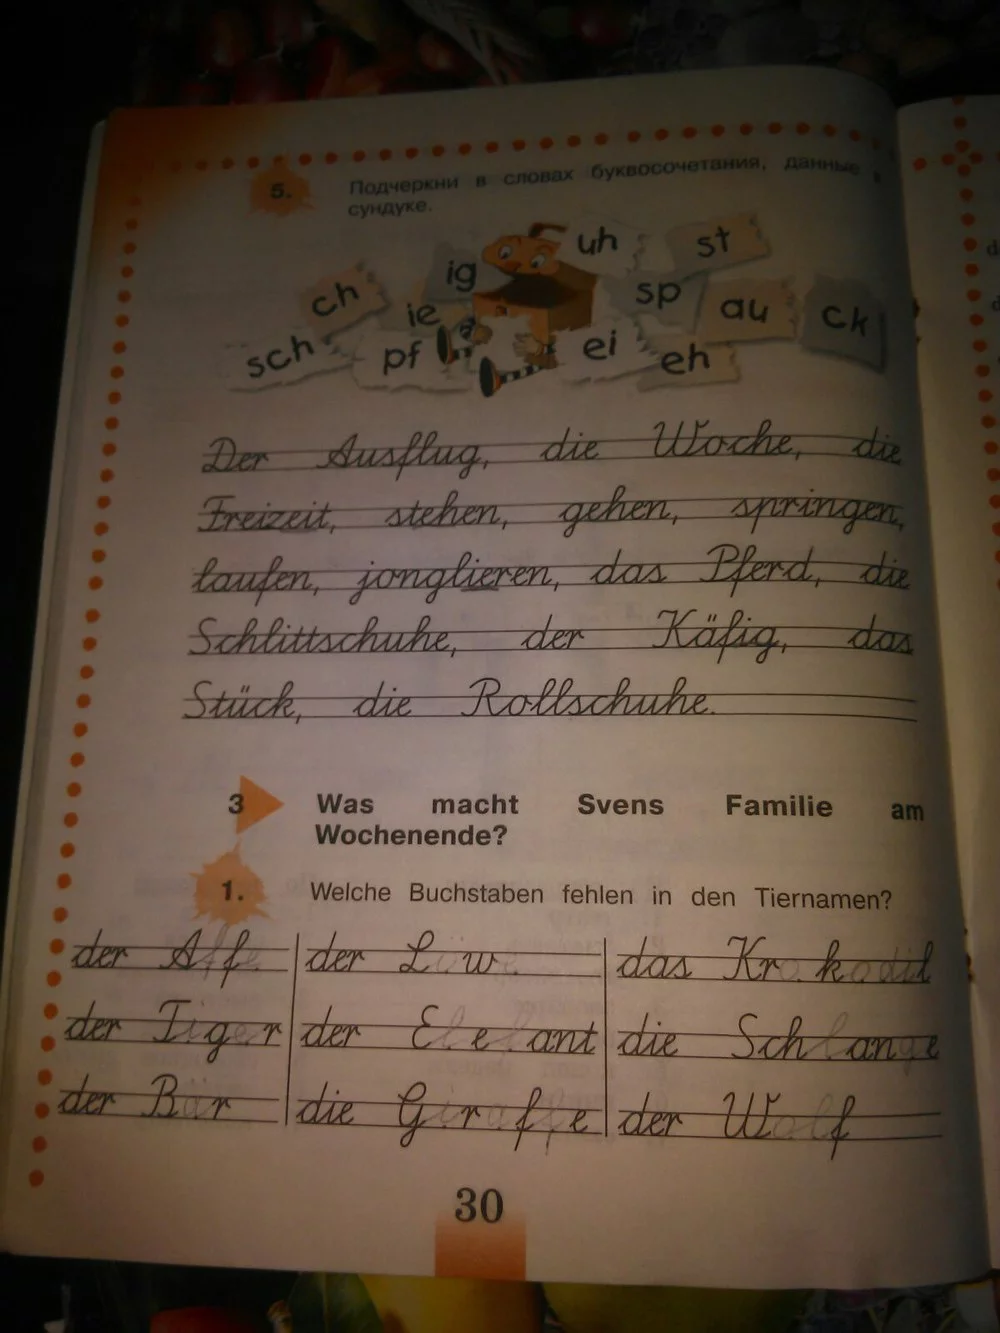 5. Подчеркни в словах буквосочетания, данные в
сундуке.
uh st
ig sp
ch ie au ck
sch pf ei eh
Der Ausflug, die Woche, die
Freizeit, stehen, gehen, springen,
laufen, jonglieren, das Pferd, die
Schlittschuhe, der Käfig, das
Stück, die Rollschuhe.
3 Was macht Svens Familie am
Wochenende?
1. Welche Buchstaben fehlen in den Tiernamen?
der Affe der Löw das Krokodil
der Tiger der Elefant die Schlange
der Bär die Giraffe der Wolf
30